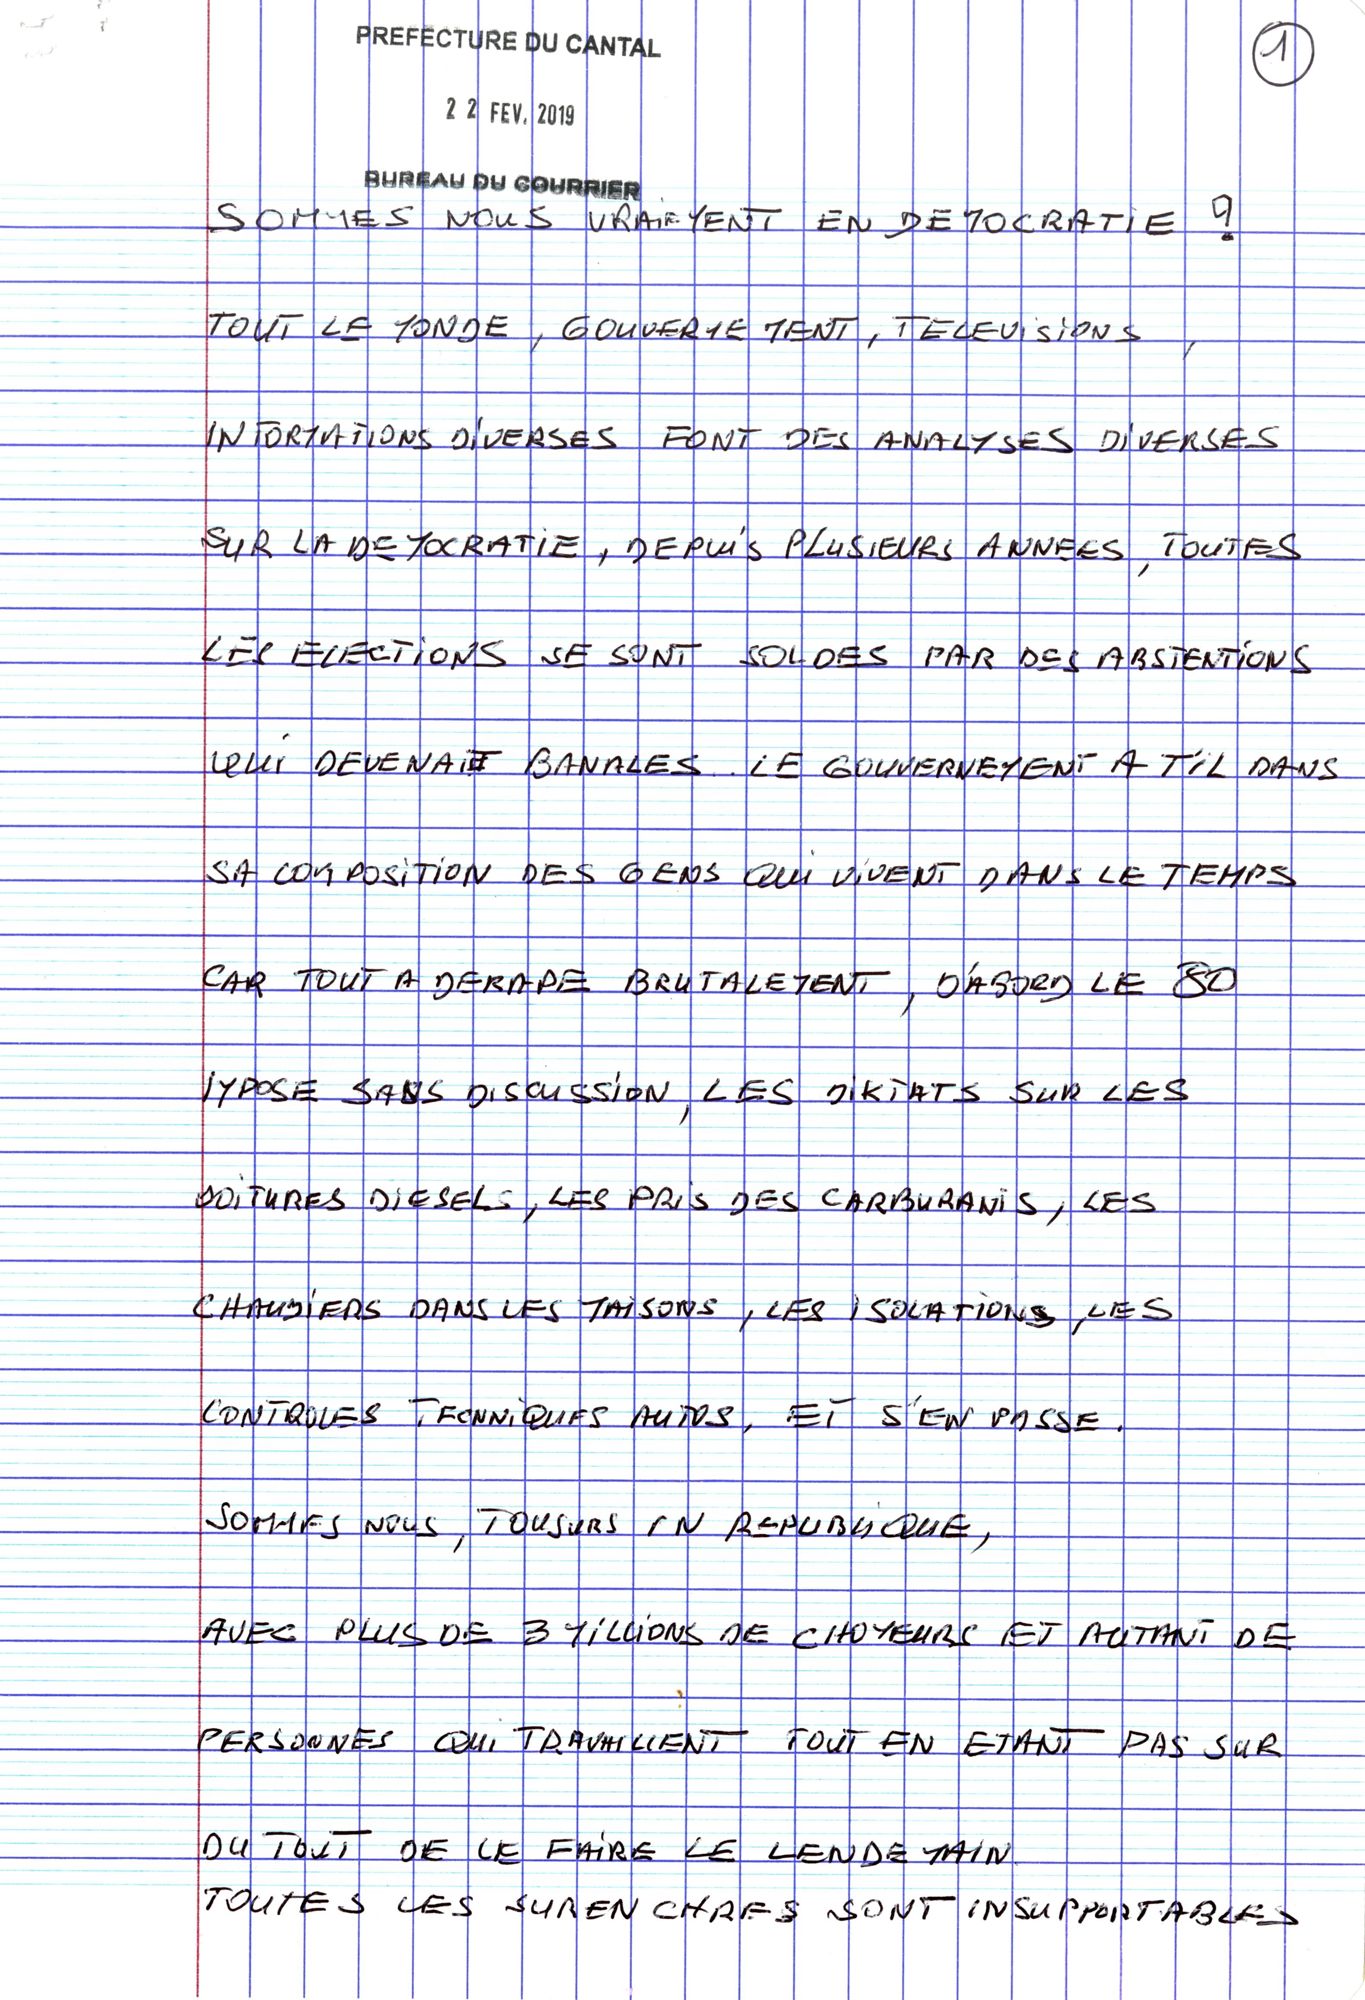 PREFECTURE DU CANTAL
1
22 FEV. 2019
BUREAU DU COURRIER
SOMMES NOUS VRAIMENT EN DEMOCRATIE ?
TOUT LE MONDE, GOUVERMEMENT, TELEVISIONS,
INFORMATIONS DIVERSES FONT DES ANALYSES DIVERSES
SUR LA DEMOCRATIE, DEPUIS PLUSIEURS ANNEES, TOUTES
LES ELECTIONS SE SONT SOLDES PAR DES ABSTENTIONS
QUI DEVENAIT BANALES. LE GOUVERNEMENT A T'IL DANS
SA COMPOSITION DES GENS QUI VIVENT DANS LE TEMPS
CAR TOUT A DERAPE BRUTALEMENT, D'ABORD LE 80
IMPOSE SANS DISCUSSION, LES DIKTATS SUR LES
VOITURES DIESELS, LES PRIS DES CARBURANTS, LES
CHAUDIERS DANS LES MAISONS, LES ISOLATIONS, LES
CONTROLES TECHNIQUES AUTOS, ET S'EN PASSE.
SOMMES NOUS, TOUJURS EN REPUBLIQUE,
AVEC PLUS DE 3 MILLIONS DE CHOMEURS ET AUTANT DE
PERSONNES QUI TRAVAILLENT TOUT EN ETANT PAS SUR
DU TOUT DE LE FAIRE LE LENDEMAIN.
TOUTES LES SURENCHRES SONT INSUPPORTABLES